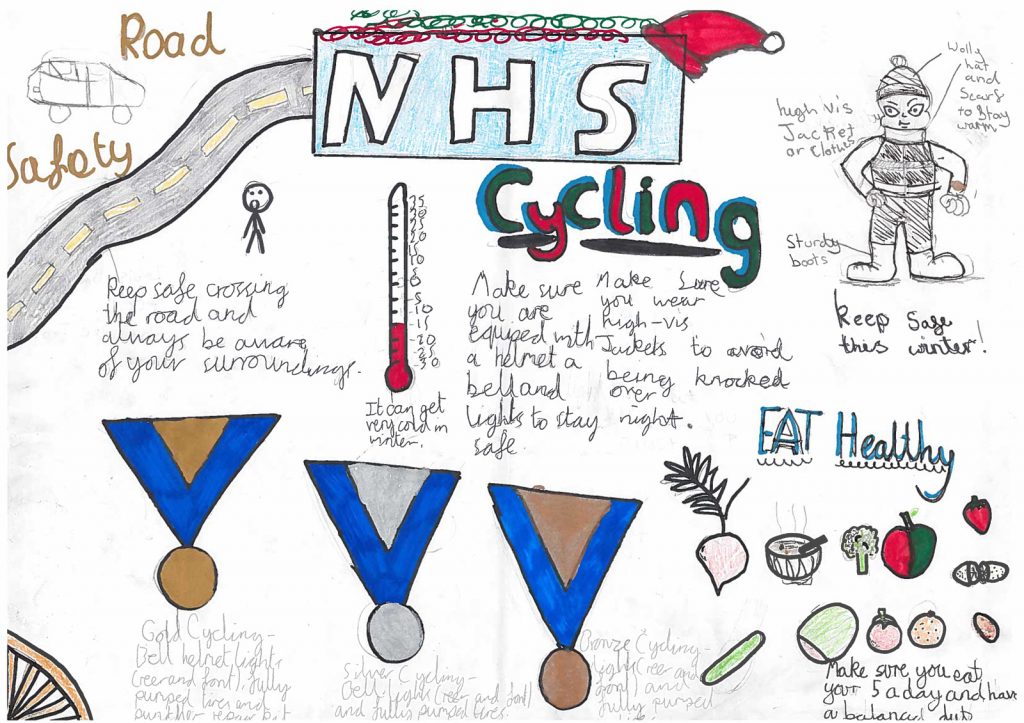 Road
Safety
NHS
Cycling
Wolly
hat
and
Scarf
to Stay
warm
high vis
Jacket
or clothes
Sturdy
boots
keep Safe
this winter!
30
25
20
15
10
5
0
-5
-10
-15
-20
-30
It can get
very cold in
winter.
Keep safe crossing
the road and
always be aware
of your surroundings.
Make sure
you are
equiped with
a helmet a
bell and
lights to stay
safe
Make Sure
you wear
high-vis
Jackets to avoid
being knocked
over
night.
EAT Healthy
Make sure you eat
your 5 a day and have
a balanced
Gold Cycling-
Bell helmet light
fully
pumped tires and
Silver Cycling-
Bell light (reer and font)
and fully pumped tires.
Bronze Cycling-
light (reer and
font) and
fully pumped